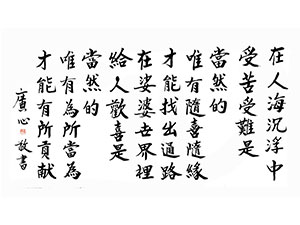 在人海沉浮中
受苦受難是
當然的
唯有隨喜隨緣
才能找出通路
在娑婆世界裡
給人歡喜是
當然的
唯有為所當為
才能有所貢献
廣心敬書